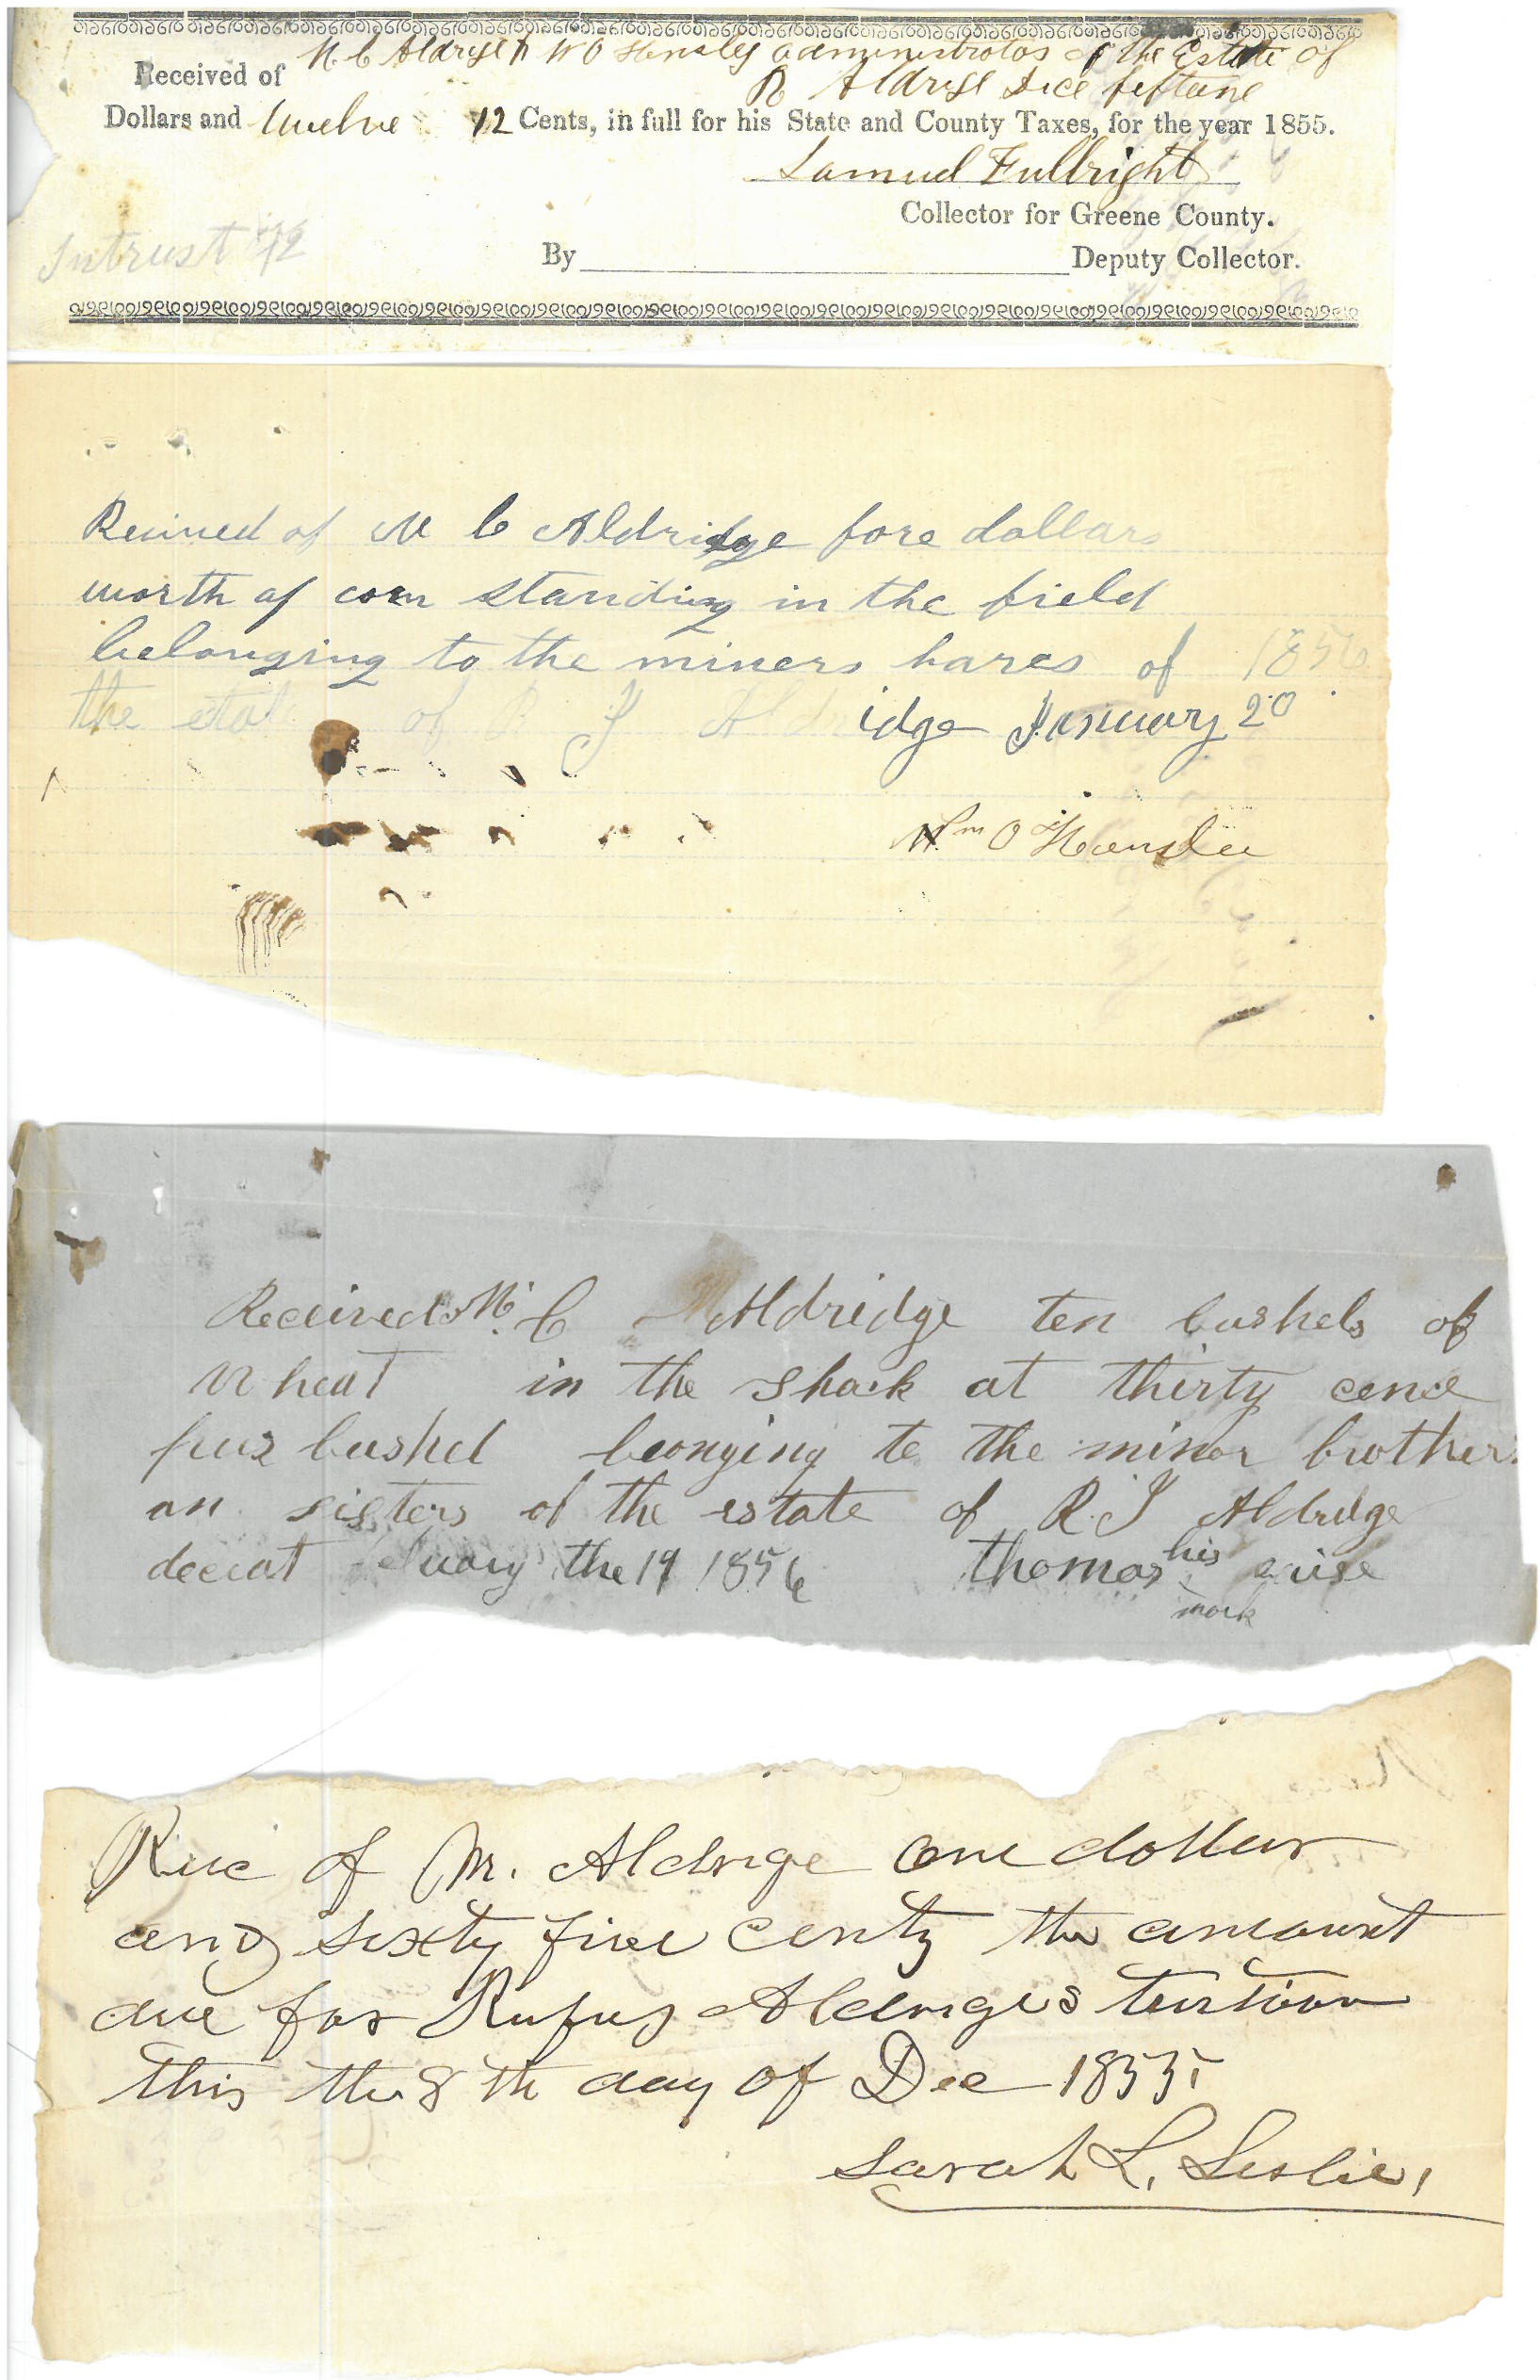 Received of N. C Aldrige & W O Hensley administrators of the Estate of
R Aldrige Dice fiftune
Dollars and twelve 12 Cents, in full for his State and County Taxes, for the year 1855.
Samuel Fullbright
Collector for Greene County.
Intrust
By Deputy Collector.
Reuived of M C Aldridge fore dollars
worth of corn standing in the field
belonging to the miners hares of 1856
the estat of J Aldridge January 20
Wm O Henslee
Received M. C Aldridge ten bushels of
Wheat in the Shock at thirty cence
pur bushel beonging to the minor brothers
an sisters of the estate of R. J Aldridge
the 19 1856 thomas his
mark
Rec of M. Aldrige One dollar
and sixty five cents the amount
due for Rufus Aldriges tuition
this the 8th day of Dec 1855
Sarah L. Leslie,